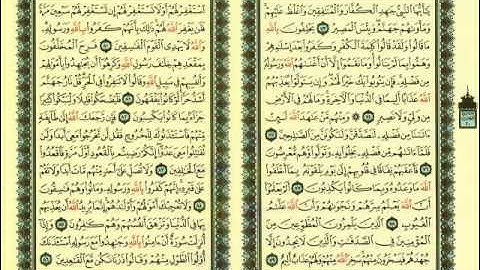 يَـٰٓأَيُّهَا ٱلنَّبِيُّ جَـٰهِدِ ٱلْكُفَّارَ وَٱلْمُنَـٰفِقِينَ وَٱغْلُظْ عَلَيْهِمْ
وَمَأْوَىٰهُمْ جَهَنَّمُ وَبِئْسَ ٱلْمَصِيرُ ٧٣ يَحْلِفُونَ بِٱللَّهِ
مَا قَالُوا۟ وَلَقَدْ قَالُوا۟ كَلِمَةَ ٱلْكُفْرِ وَكَفَرُوا۟ بَعْدَ إِسْلَـٰمِهِمْ
وَهَمُّوا۟ بِمَا لَمْ يَنَالُوا۟ وَمَا نَقَمُوٓا۟ إِلَّآ أَنْ أَغْنَىٰهُمُ ٱللَّهُ وَرَسُولُهُۥ
مِن فَضْلِهِۦ فَإِن يَتُوبُوا۟ يَكُ خَيْرًا لَّهُمْ وَإِن يَتَوَلَّوْا۟ يُعَذِّبْهُمُ
ٱللَّهُ عَذَابًا أَلِيمًا فِي ٱلدُّنْيَا وَٱلْـَٔاخِرَةِ وَمَا لَهُمْ فِي ٱلْأَرْضِ
مِن وَلِيٍّ وَلَا نَصِيرٍ ٧٤ ۞ وَمِنْهُم مَّنْ عَـٰهَدَ ٱللَّهَ لَئِنْ
ءَاتَىٰنَا مِن فَضْلِهِۦ لَنَصَّدَّقَنَّ وَلَنَكُونَنَّ مِنَ ٱلصَّـٰلِحِينَ ٧٥
فَلَمَّآ ءَاتَىٰهُم مِّن فَضْلِهِۦ بَخِلُوا۟ بِهِۦ وَتَوَلَّوا۟ وَّهُم مُّعْرِضُونَ ٧٦
فَأَعْقَبَهُمْ نِفَاقًا فِي قُلُوبِهِمْ إِلَىٰ يَوْمِ يَلْقَوْنَهُۥ بِمَآ أَخْلَفُوا۟
ٱللَّهَ مَا وَعَدُوهُ وَبِمَا كَانُوا۟ يَكْذِبُونَ ٧٧ أَلَمْ يَعْلَمُوٓا۟
أَنَّ ٱللَّهَ يَعْلَمُ سِرَّهُمْ وَنَجْوَىٰهُمْ وَأَنَّ ٱللَّهَ عَلَّـٰمُ
ٱلْغُيُوبِ ٧٨ ٱلَّذِينَ يَلْمِزُونَ ٱلْمُطَّوِّعِينَ مِنَ
ٱلْمُؤْمِنِينَ فِي ٱلصَّدَقَـٰتِ وَٱلَّذِينَ لَا يَجِدُونَ إِلَّا
جُهْدَهُمْ فَيَسْخَرُونَ مِنْهُمْ سَخِرَ ٱللَّهُ مِنْهُمْ وَلَهُمْ عَذَابٌ أَلِيمٌ ٧٩
ٱسْتَغْفِرْ لَهُمْ أَوْ لَا تَسْتَغْفِرْ لَهُمْ إِن تَسْتَغْفِرْ لَهُمْ سَبْعِينَ مَرَّةً
فَلَن يَغْفِرَ ٱللَّهُ لَهُمْ ذَٰلِكَ بِأَنَّهُمْ كَفَرُوا۟ بِٱللَّهِ وَرَسُولِهِۦ
وَٱللَّهُ لَا يَهْدِي ٱلْقَوْمَ ٱلْفَـٰسِقِينَ ٨٠ فَرِحَ ٱلْمُخَلَّفُونَ
بِمَقْعَدِهِمْ خِلَـٰفَ رَسُولِ ٱللَّهِ وَكَرِهُوٓا۟ أَن يُجَـٰهِدُوا۟ بِأَمْوَٰلِهِمْ
وَأَنفُسِهِمْ فِي سَبِيلِ ٱللَّهِ وَقَالُوا۟ لَا تَنفِرُوا۟ فِي ٱلْحَرِّ قُلْ نَارُ جَهَنَّمَ
أَشَدُّ حَرًّا لَّوْ كَانُوا۟ يَفْقَهُونَ ٨١ فَلْيَضْحَكُوا۟ قَلِيلًا وَلْيَبْكُوا۟ كَثِيرًا
جَزَآءًۢ بِمَا كَانُوا۟ يَكْسِبُونَ ٨٢ فَإِن رَّجَعَكَ ٱللَّهُ إِلَىٰ طَآئِفَةٍ
مِّنْهُمْ فَٱسْتَـْٔذَنُوكَ لِلْخُرُوجِ فَقُل لَّن تَخْرُجُوا۟ مَعِيَ أَبَدًا وَلَن
تُقَـٰتِلُوا۟ مَعِيَ عَدُوًّا إِنَّكُمْ رَضِيتُم بِٱلْقُعُودِ أَوَّلَ مَرَّةٍ فَٱقْعُدُوا۟
مَعَ ٱلْخَـٰلِفِينَ ٨٣ وَلَا تُصَلِّ عَلَىٰٓ أَحَدٍ مِّنْهُم مَّاتَ أَبَدًا وَلَا تَقُمْ
عَلَىٰ قَبْرِهِۦٓ إِنَّهُمْ كَفَرُوا۟ بِٱللَّهِ وَرَسُولِهِۦ وَمَاتُوا۟ وَهُمْ فَـٰسِقُونَ
٨٤ وَلَا تُعْجِبْكَ أَمْوَٰلُهُمْ وَأَوْلَـٰدُهُمْ إِنَّمَا يُرِيدُ ٱللَّهُ أَن يُعَذِّبَهُم
بِهَا فِي ٱلدُّنْيَا وَتَزْهَقَ أَنفُسُهُمْ وَهُمْ كَـٰفِرُونَ ٨٥ وَإِذَآ
أُنزِلَتْ سُورَةٌ أَنْ ءَامِنُوا۟ بِٱللَّهِ وَجَـٰهِدُوا۟ مَعَ رَسُولِهِ ٱسْتَـْٔذَنَكَ
أُو۟لُوا۟ ٱلطَّوْلِ مِنْهُمْ وَقَالُوا۟ ذَرْنَا نَكُن مَّعَ ٱلْقَـٰعِدِينَ ٨٦